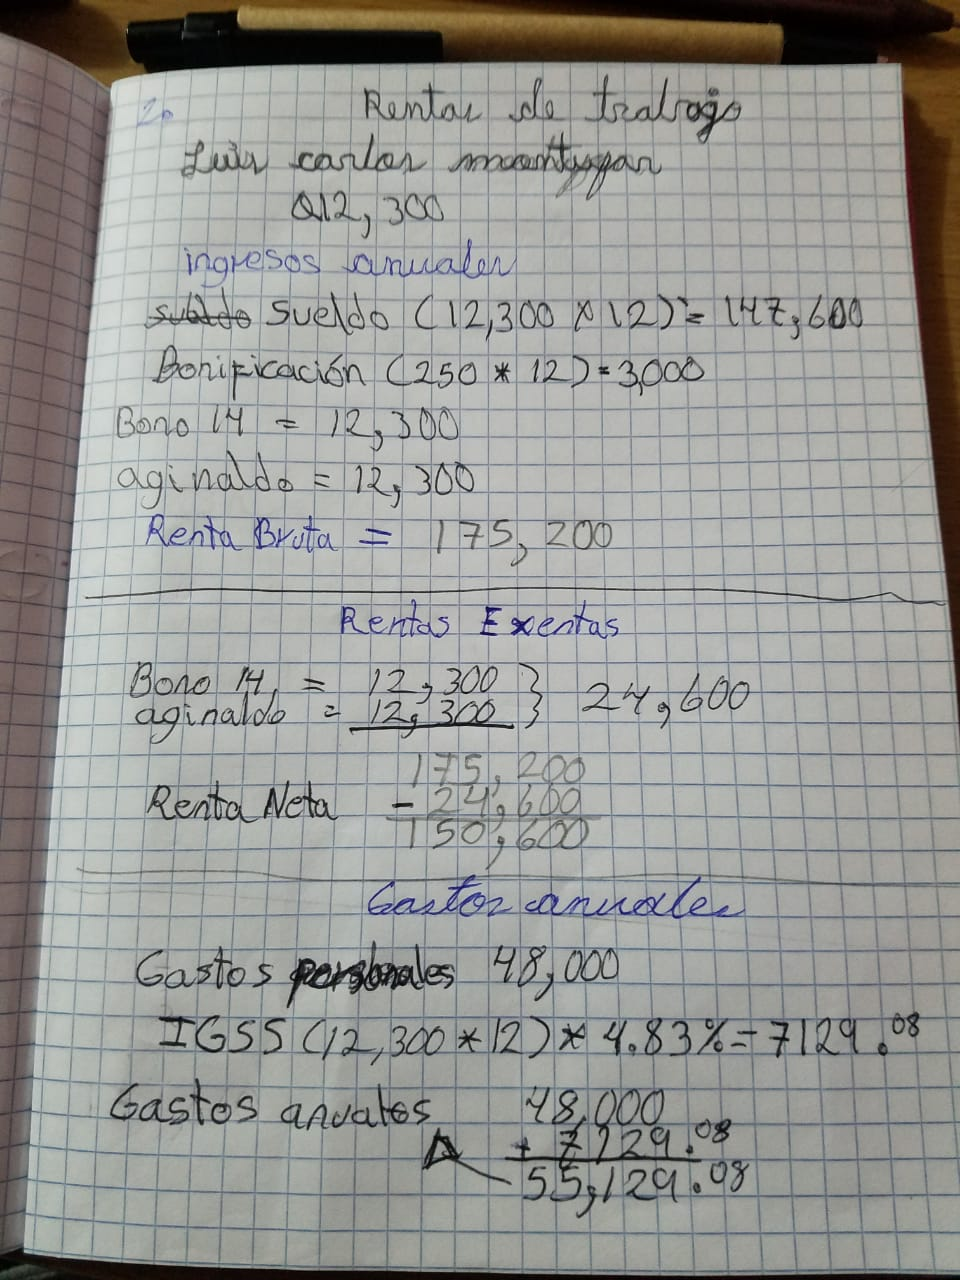 Rentas de trabajo
Luis carlos
Q12,300
ingresos anuales
sueldo Sueldo (12,300 * 12) = 147,600
Bonificación (250 * 12) = 3,000
Bono 14 = 12,300
aginaldo = 12,300
Renta Bruta = 175,200
Rentas Exentas
Bono 14 = 12,300 } 24,600
aginaldo = 12,300
175,200
Renta Neta - 24,600
150,600
Gastos anuales
Gastos personales 48,000
IGSS (12,300 * 12) * 4.83% = 7129.08
Gastos anuales 48,000
+ 7129.08
55,129.08